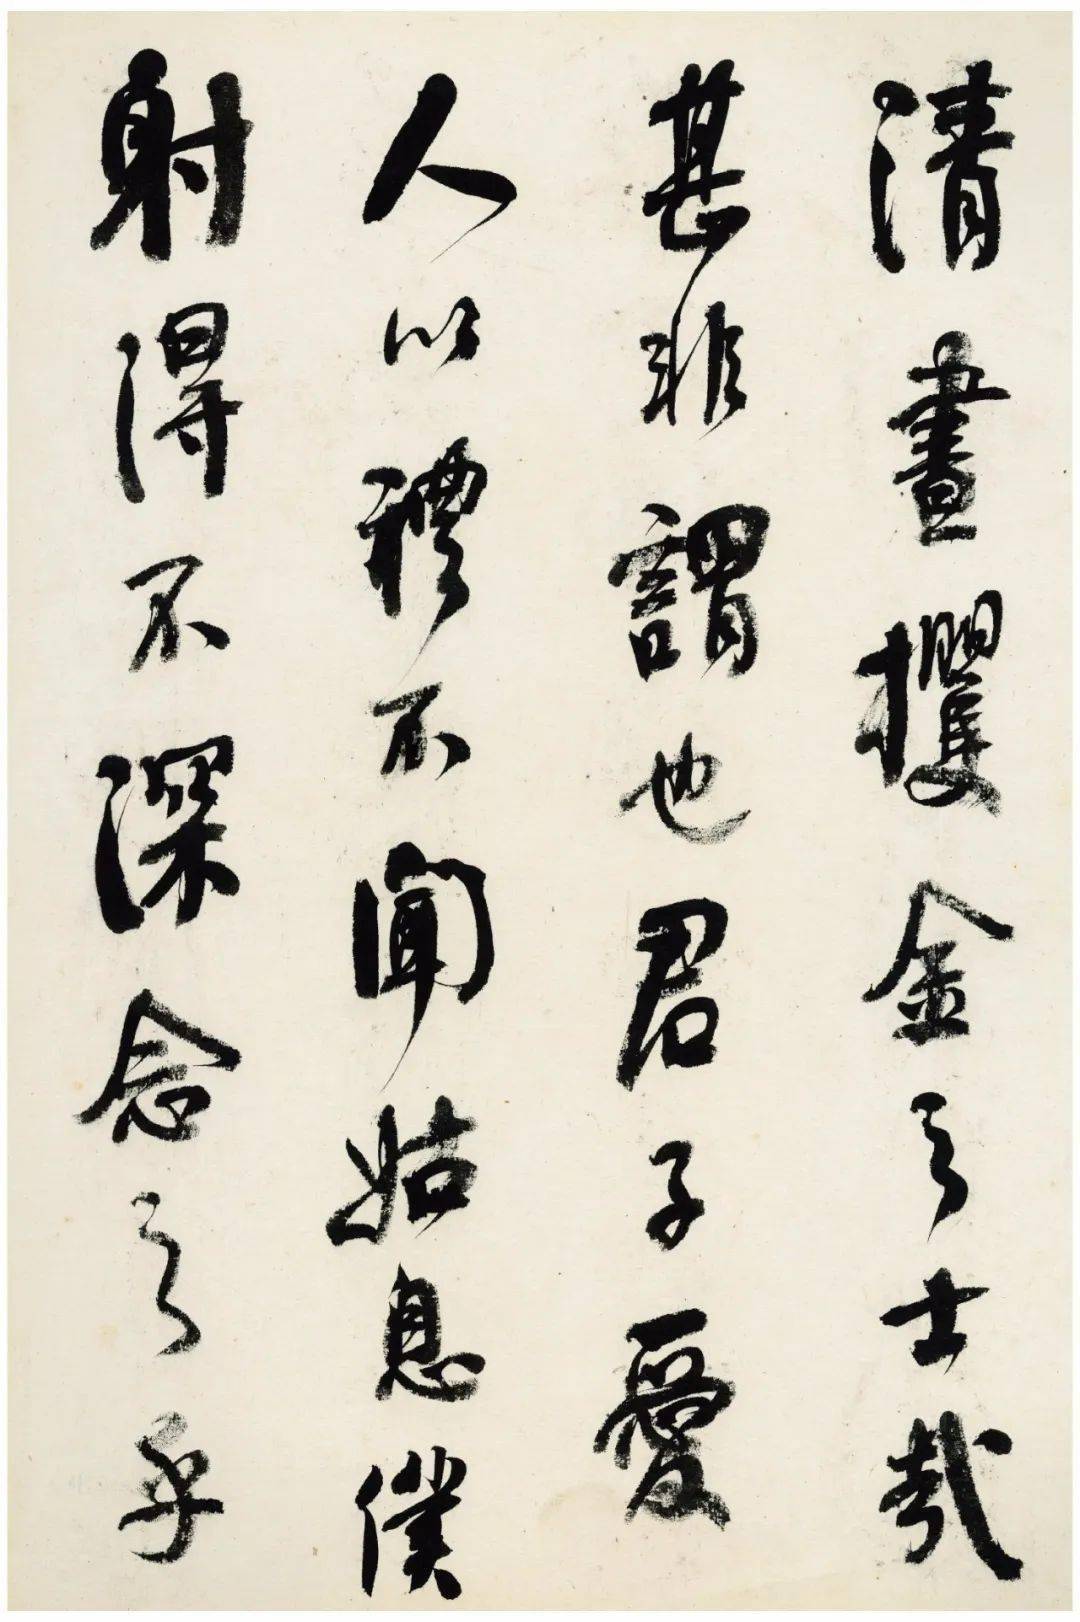 清晝攫金之士哉
甚非謂也君子愛
人以禮不聞姑息僕
射得不深念之乎